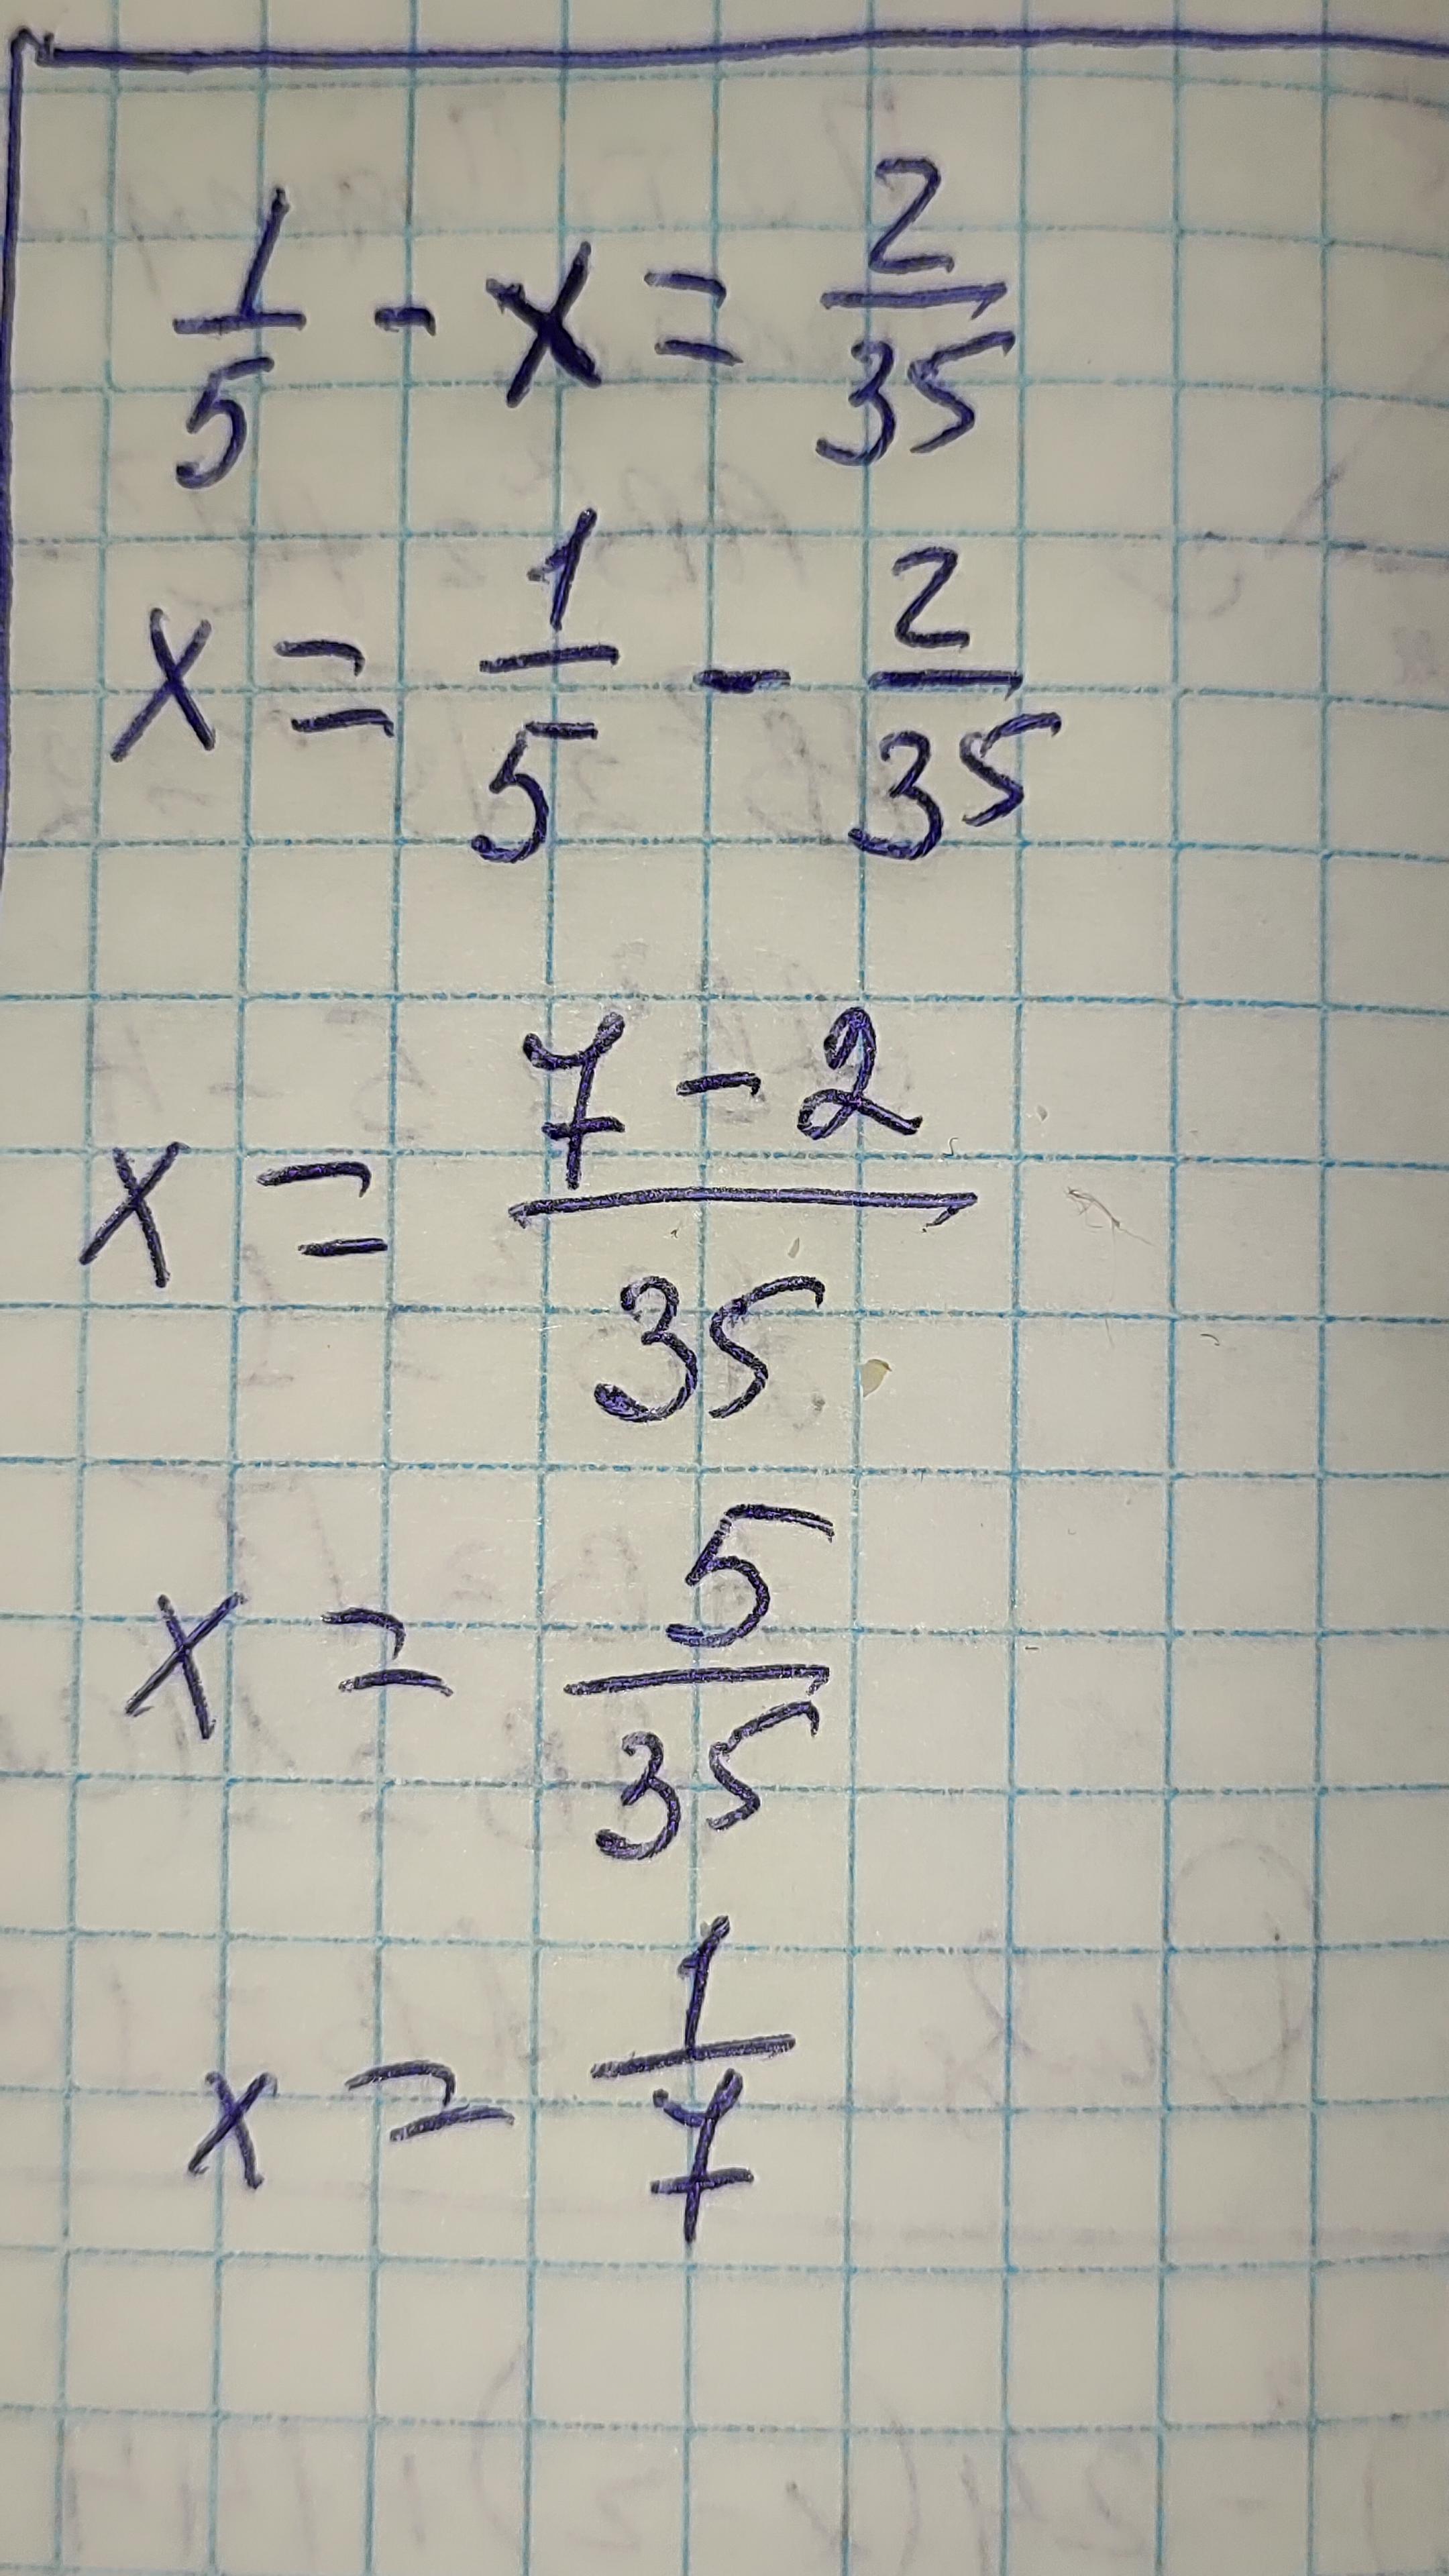 1/5 - x = 2/35
x = 1/5 - 2/35
x = (7 - 2)/35
x = 5/35
x = 1/7